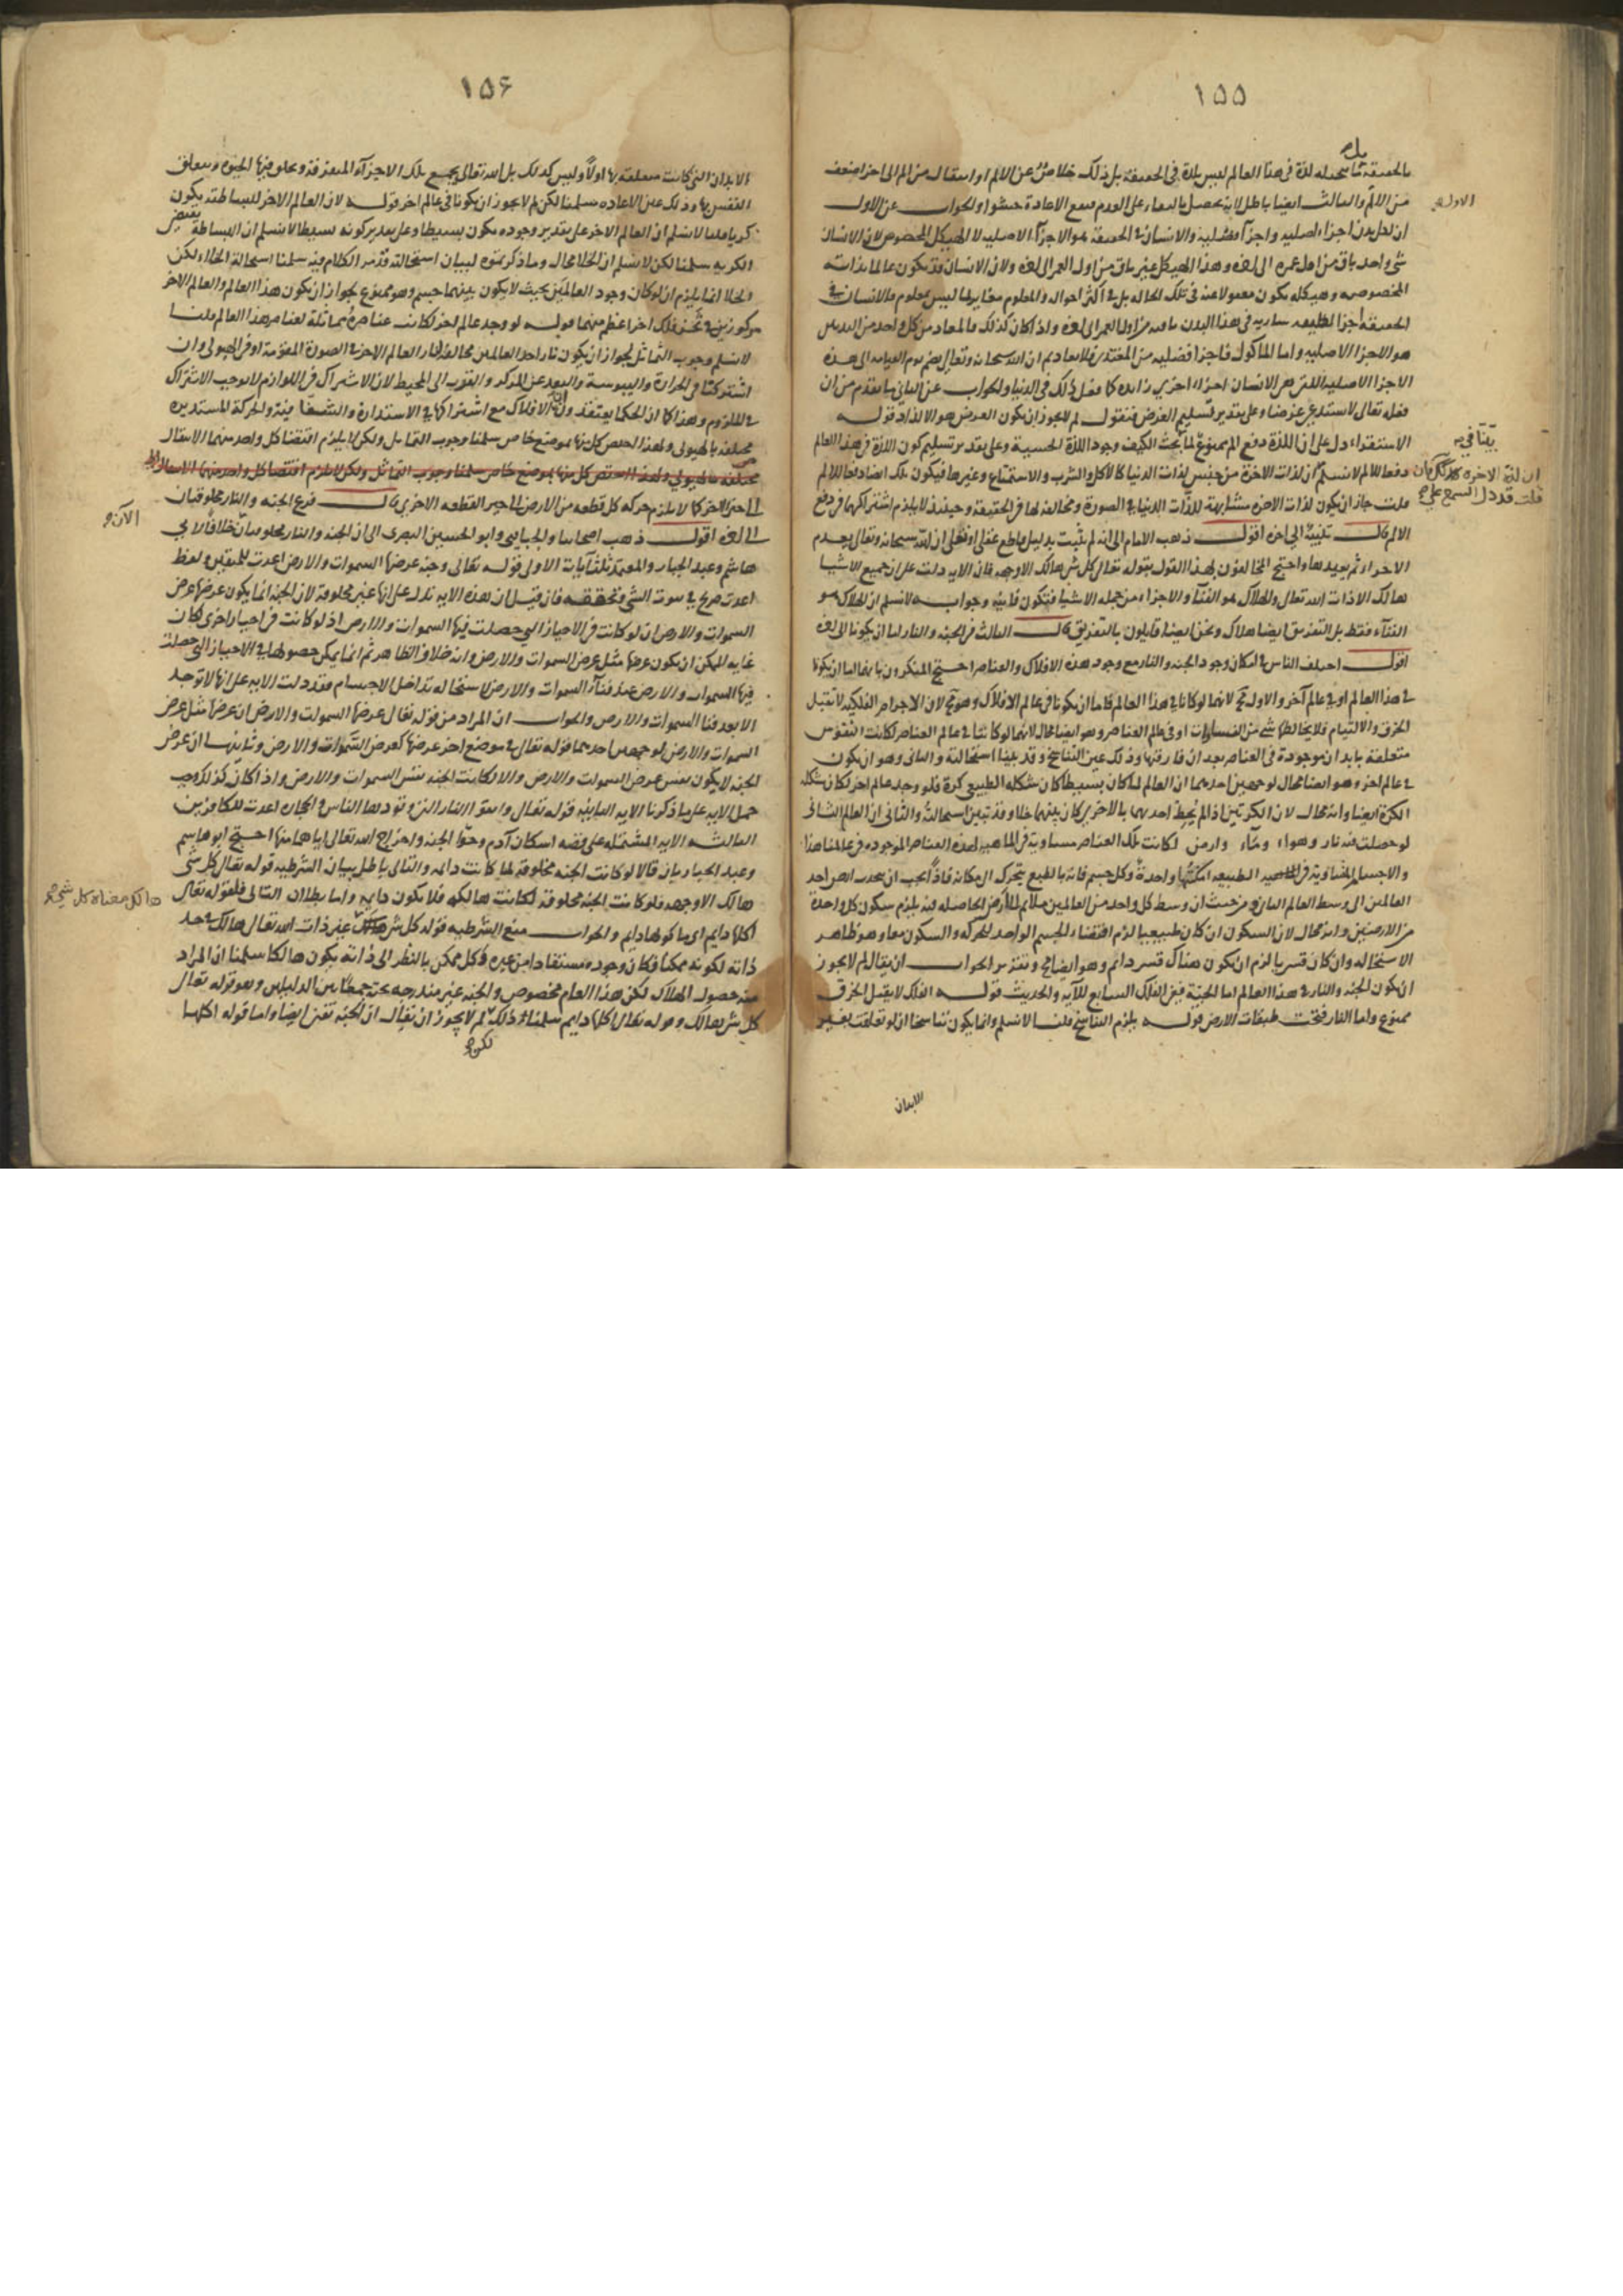 ١٥٥
بالحقيقة فما نتخيله لذة في هذا العالم ليس بلذة في الحقيقة بل ذلك خلاص عن الالم او انتقال من الم الى اخر اضعف
من الالم والثالث ايضا باطل لانه يحصل بالبقاء على العدم فتقع الاعادة حشوا والجواب عن الاول
ان لكل بدن اجزاء اصليه واجزآء فضليه والانسان في الحقيقة هو الاجزآء الاصليه لا الهيكل المخصوص لان الانسان
شئ واحد باق من اول عمره الى اخره وهذا الهيكل غير باق من اول العمر الى اخره ولان الانسان قد يكون عالما بذاته
المخصوصه وهيكله يكون مغفولا عنه في تلك الحاله بل في اكثر احواله والمعلوم مغاير لما ليس بمعلوم فالانسان في
الحقيقة اجزا لطيفه ساريه في هذا البدن باقيه من اول العمر الى اخره واذا كان كذلك فالمعاد من كل واحد من البدنين
هو الاجزا الاصليه واما الماكول فاجزا فضليه من المغتذى فلا يعاد ثم ان الله سبحانه وتعالى يضم يوم القيامه الى هذه
الاجزا الاصليه التي هي الانسان اجزاء اخرى زائده كما فعل ذلك في الدنيا والجواب عن الثاني ما تقدم من ان
فعله تعالى لا يستدعى غرضا وعلى تقدير تسليم الغرض فنقول لم لا يجوز ان يكون الغرض هو الالذاذ قوله
الاستقراء دل على ان اللذة دفع الم ممنوع لما
دفعا للالم لا نسلم ان لذات الاخرة من جنس لذات الدنيا كالاكل والشرب والاستمتاع وغيرها فيكون تلك ايضا دفعا للالم
قلت جاز ان يكون لذات الاخره مشابهة للذات الدنيا في الصورة ومخالفة لها في الحقيقة وحينئذ لا يلزم اشتراكهما في دفع
الالم قال تنبيه الى اخره اقول ذهب الامام الى انه لم يثبت بدليل قاطع عقلى او نقلى ان الله سبحانه وتعالى يعدم
الاجزاء ثم يعيدها واحتج المخالفون بهذا القول بقوله تعالى كل شئ هالك الا وجهه فان الايه دلت على ان جميع الاشيا
هالك الا ذات الله تعالى والهلاك هو الفنآء والاجزاء من جمله الاشيا فتكون فانيه وجوابه لا نسلم ان الهلاك هو
الفنآء فقط بل التفريق ايضا هلاك ونحن ايضا قايلون بالتفريق قال الثالث في الجنه والنار الى اخره
اقول اختلف الناس في امكان وجود الجنه والنار مع وجود هذه الافلاك والعناصر احتج المنكرون بانهما اما ان يكونا
في هذا العالم او في عالم آخر والاول مح لانهما لو كانا في هذا العالم فاما ان يكونا في عالم الافلاك وهو مح لان الاجرام الفلكيه لا تقبل
الخرق والالتيام فلا يخالطها شئ من الفسادات او في عالم العناصر وهو ايضا محال لانهما لو كانتا في عالم العناصر لكانت النفوس
متعلقة بابدان موجودة في العناصر بعد ان فارقتها وذلك عين التناسخ وقد بينا استحالته والثانى وهو ان يكون
في عالم اخر وهو ايضا محال لوجهين احدهما ان العالم لما كان بسيطا كان شكله الطبيعى كرة فلو وجد عالم اخر لكان شكله
الكرة ايضا وانه محال لان الكرتين اذا لم يحط احديهما بالاخرى كان بينهما خلا وقد تبين استحالته والثانى ان العالم الثانى
لو حصلت فيه نار وهواء ومآء وارض لكانت تلك العناصر مساوية في الماهيه لهذه العناصر الموجوده في عالمنا هذا
والاجسام المتساوية في الماهيه الطبيعه امكنتها واحدة وكل جسم فانه بالطبع يتحرك الى مكانه فاذاً يجب ان يتحرك ارض احد
العالمين الى وسط العالم الثانى ومن حيث ان وسط كل واحد من العالمين ملائم للارض الحاصله فيه يلزم سكون كل واحدة
من الارضين وانه محال لان السكون ان كان طبيعيا لزم اقتضاء الجسم الواحد للحركه والسكون معا وهو ظاهر
الاستحاله وان كان قسريا لزم ان يكون هناك قسر دائم وهو ايضا مح وتقرير الجواب ان يقال لم لا يجوز
ان يكون الجنه والنار في هذا العالم اما الجنة ففي الفلك السابع للآيه والحديث قوله الفلك لا يقبل الخرق
ممنوع واما النار فتحت طبقات الارض قوله يلزم التناسخ قلنا لا نسلم وانما يكون تناسخا ان لو تعلقت بغير
الابدان
الاول
بينا في
ان لذة الاخره
قلت قد دل السمع على
١٥٦
الابدان التي كانت متعلقة بها اولاً وليس كذلك بل الله تعالى يجمع تلك الاجزآء المتفرقة ويخلق فيها الحيوه ويعلق
النفس بها وذلك عين الاعاده سلمنا لكن لم لا يجوز ان يكونا في عالم اخر قوله لان العالم الاخر للبساطة يكون
كريا قلنا لا نسلم ان العالم الاخر على تقدير وجوده يكون بسيطا وعلى تقدير كونه بسيطا لا نسلم ان البساطة تقتضى
الكريه سلمنا لكن لا نسلم ان الخلا محال وما ذكرتموه لبيان استحالته قد مر الكلام فيه سلمنا استحالة الخلاء لكن
الخلا انما يلزم ان لو كان وجود العالمين بحيث لا يكون بينهما جسم وهو ممنوع لجواز ان يكون هذا العالم والعالم الاخر
مركوزين في ثخن فلك اخر اعظم منهما قوله لو وجد عالم اخر لكانت عناصره مماثلة لعناصر هذا العالم قلنا
لا نسلم وجوب التماثل لجواز ان يكون نار احد العالمين مخالفة لنار العالم الاخر في الصورة المقومة او في الهيولى وان
اشتركتا في الحرارة واليبوسة والبعد عن المركز والقرب الى المحيط لان الاشتراك في اللوازم لا يوجب الاشتراك
في الملزوم وهذا كما ان الحكما يعتقدون ان الافلاك مع اشتراكها في الاستدارة والشفافية والحركة المستديره
مختلفة بالهيولى ولهذا اختص كل منها بموضع خاص سلمنا وجوب التماثل ولكن لا يلزم اقتضا كل واحد منهما الانتقال
مختلفة بالهيولى ولهذا اختص كل منها بموضع خاص سلمنا وجوب التماثل ولكن لا يلزم اقتضا كل واحد منهما الانتقال
الى حيز الاخر كما لا يلزم حركة كل قطعه من الارض الى حيز القطعه الاخرى قال فرع الجنه والنار مخلوقتان
الى اخره اقول ذهب اصحابنا والجبايى وابو الحسين البصرى الى ان الجنه والنار مخلوقتان خلافا لابي
هاشم وعبد الجبار والمعتمد ثلث آيات الاولى قوله تعالى وجنه عرضها السموات والارض اعدت للمتقين ولفظ
اعدت صريح في ثبوت الشئ وتحققه فان قيل ان هذه الايه تدل على انها غير مخلوقة لان الجنه انما يكون عرضها عرض
السموات والارض ان لو كانت في الاحياز التي حصلت فيها السموات والارض اذ لو كانت في احياز اخرى لكان
غايه الممكن ان يكون عرضها مثل عرض السموات والارض وانه خلاف الظاهر ثم انما يمكن حصولها في الاحياز التي حصلت
فيها السموات والارض عند فنآء السموات والارض لاستحاله تداخل الاجسام فقد دلت الايه على انها لا توجد
الا بعد فنا السموات والارض والجواب ان المراد من قوله تعالى عرضها السموات والارض ان عرضها مثل عرض
السموات والارض لوجهين احدهما قوله تعالى في موضع اخر عرضها كعرض السموات والارض وثانيهما ان عرض
الجنه لا يكون نفس عرض السموات والارض والا لكانت الجنه نفس السموات والارض واذا كان كذلك وجب
حمل الايه على ما ذكرنا الايه الثانيه قوله تعالى واتقوا النار التي وقودها الناس والحجاره اعدت للكافرين
الثالثه الايه المشتمله على قصه اسكان آدم وحوا الجنه واخراج الله تعالى اياهما منها احتج ابو هاشم
وعبد الجبار بان قالا لو كانت الجنه مخلوقة لما كانت دائمه والتالى باطل بيان الشرطيه قوله تعالى كل شئ
هالك الا وجهه فلو كانت الجنه مخلوقة لكانت هالكه فلا يكون دايمه واما بطلان التالى فلقوله تعالى
اكلها دايم اى ماكولها دايم والجواب منع الشرطيه قوله كل شئ هالك غير ذات الله تعالى هالك في حد
ذاته لكونه ممكنا وكان وجوده مستفادا من غيره فكل ممكن بالنظر الى ذاته يكون هالكا سلمنا ان المراد
منه حصول الهلاك لكن هذا العام مخصوص والجنه غير مندرجه تحته جمعا بين الدليلين وهو قوله تعالى
كل شئ هالك وقوله تعالى اكلها دايم سلمنا ذلك لم لا يجوز ان يقال ان الجنة تفنى ايضا واما قوله اكلها
لكن
الآن
هالك معناه كل شئ